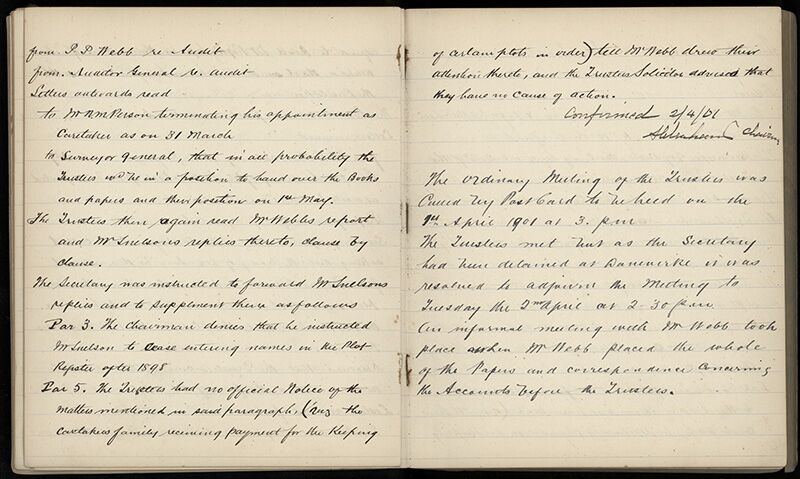 from P. P. Webb re Audit
from Auditor General re. audit
Letters outwards read
to Mr McPerson terminating his appointment as
Caretaker as on 31 March
to Surveyor General, that in all probability the
Trustees wd be in a position to hand over the Books
and papers and their position on 1st May.
The Trustees then again read Mr Webbs report
and Mr Snelsons replies thereto, clause by
clause.
The Secretary was instructed to forward Mr Snelsons
replies and to supplment them as follows
Par 3. The Chairman denies that he instructed
Mr Snelson to cease entering names in the Plot
Register after 1895
Par 5. The Trustees had no official Notice of the
matters mentioned in said paragraph, (viz the
caretakers family receiving payment for the Keeping
of certain plots in order) till Mr Webb drew their
attention thereto, and the Trustees Solicitor advised that
they have no cause of action.
Confirmed 2/4/01
Chairman
The ordinary Meeting of the Trustees was
Called by Post Card to be held on the
1st April 1901 at 3. p.m
The Trustees met but as the Secretary
had been detained at Danevirke it was
resolved to adjourn the Meeting to
Tuesday the 2nd April at 2-30 p.m
An informal meeting with Mr Webb took
place when Mr Webb placed the whole
of the Papers and correspondence concerning
the Accounts before the Trustees.